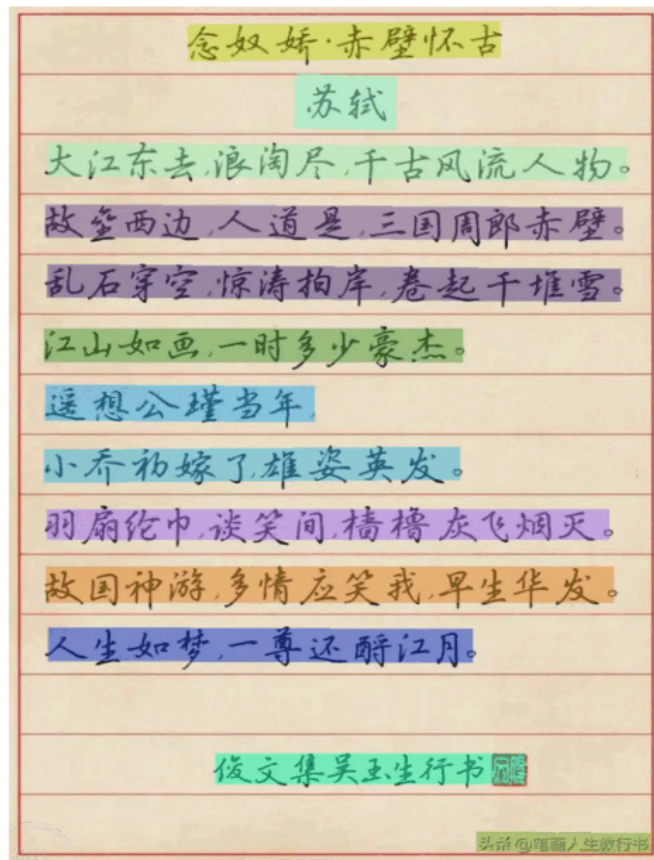 念奴娇·赤壁怀古
苏轼
大江东去,浪淘尽,千古风流人物。
故垒西边,人道是,三国周郎赤壁。
乱石穿空,惊涛拍岸,卷起千堆雪。
江山如画,一时多少豪杰。
遥想公瑾当年,
小乔初嫁了,雄姿英发。
羽扇纶巾,谈笑间,樯橹灰飞烟灭。
故国神游,多情应笑我,早生华发。
人生如梦,一尊还酹江月。
俊文集吴玉生行书
头条@笔画人生教行书